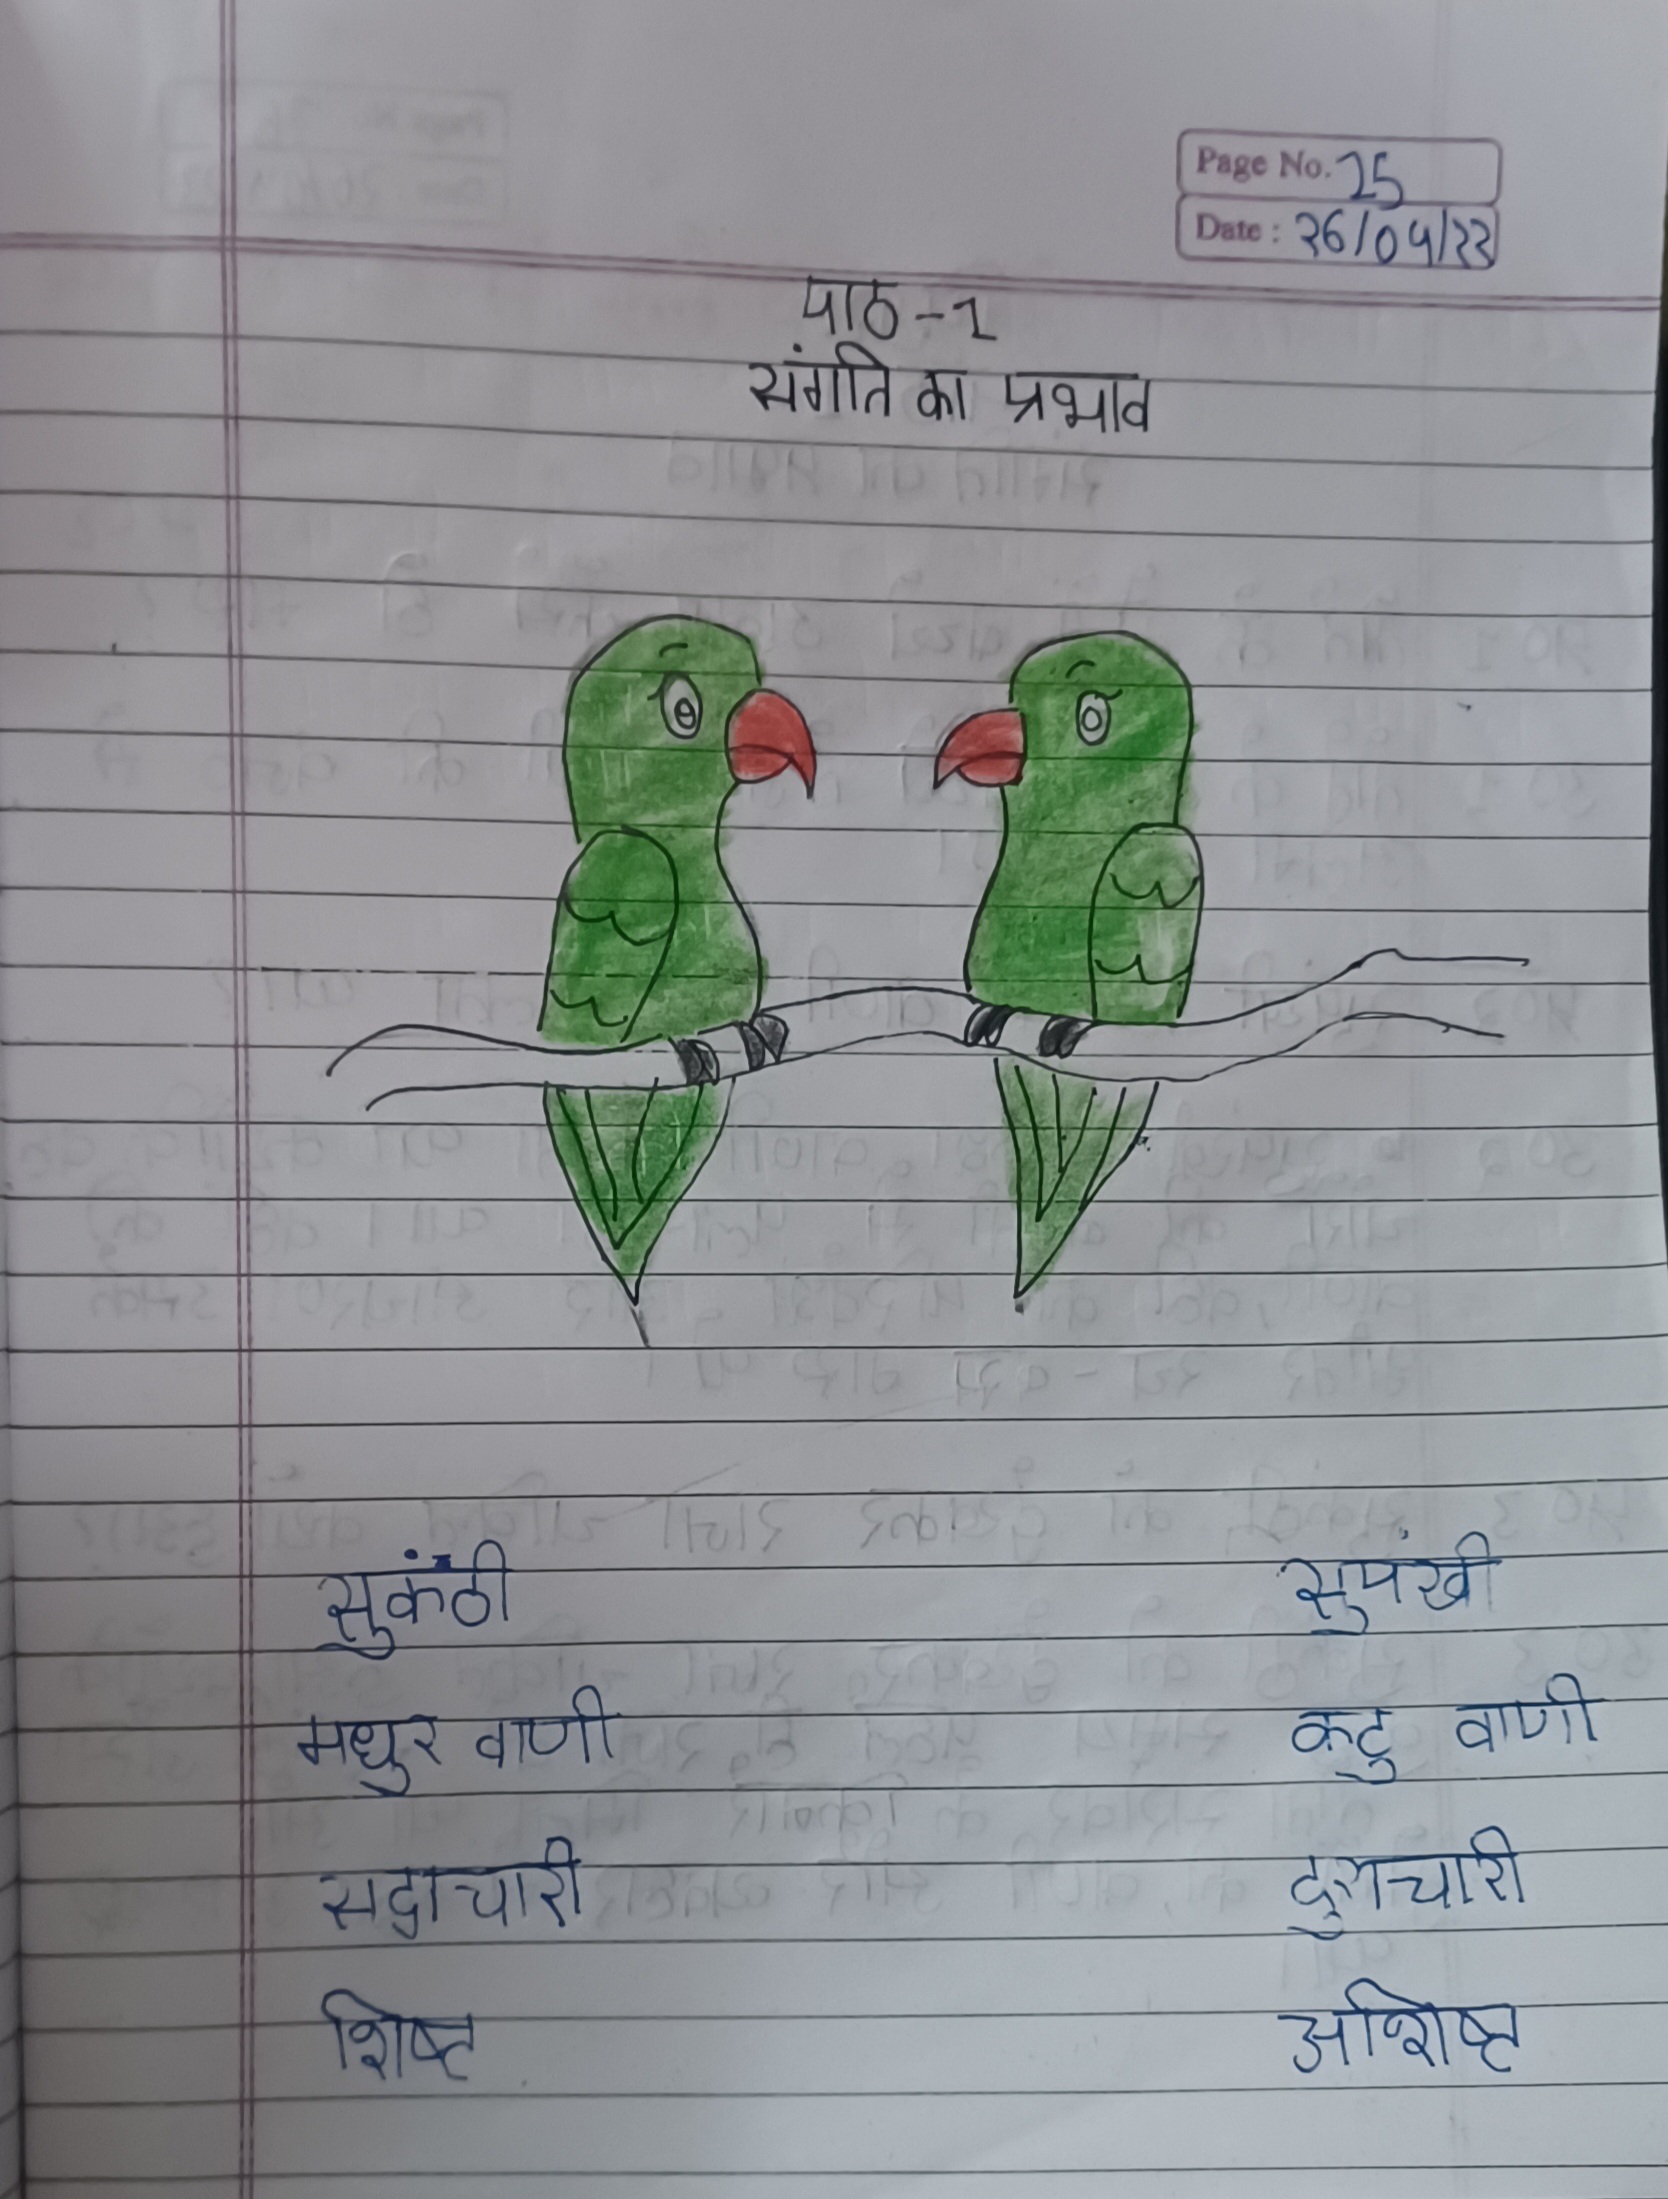 Page No. 25
Date : 26/04/22
पाठ - 1
संगति का प्रभाव
सुकंठी सुपंखी
मधुर वाणी कटु वाणी
सदाचारी दुराचारी
शिष्ट अशिष्ट